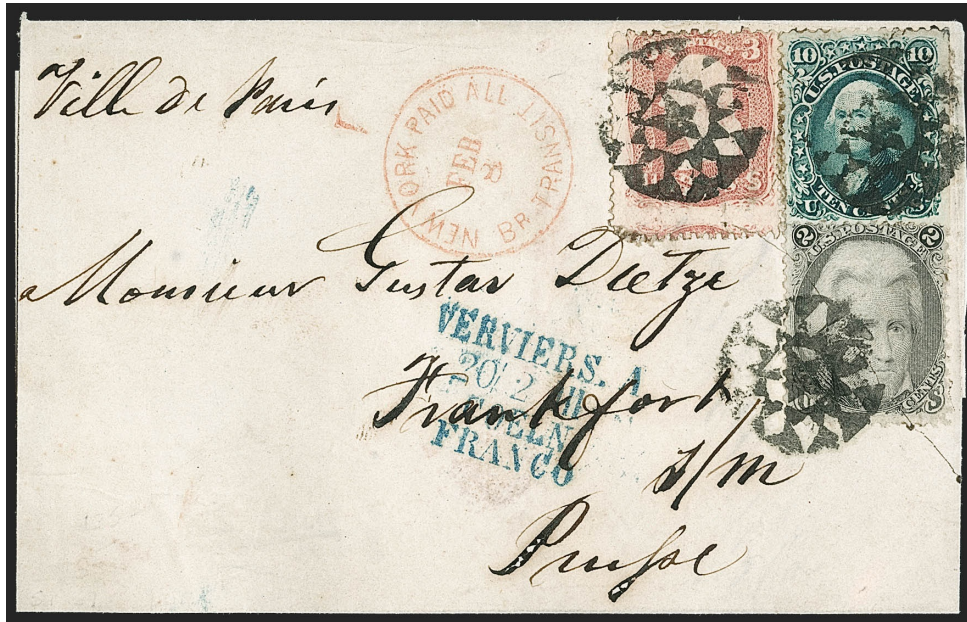 Ville de Paris
NEW YORK PAID ALL BR TRANSIT
FEB
3
3
U S
10 10
U.S. POSTAGE
TEN CENTS
U S
2 2
U.S. POSTAGE
CENTS
Monsieur Gustav Dietze
VERVIERS. A
20/2 III
COELN
FRANCO
Frankfort
s/m
Prusse